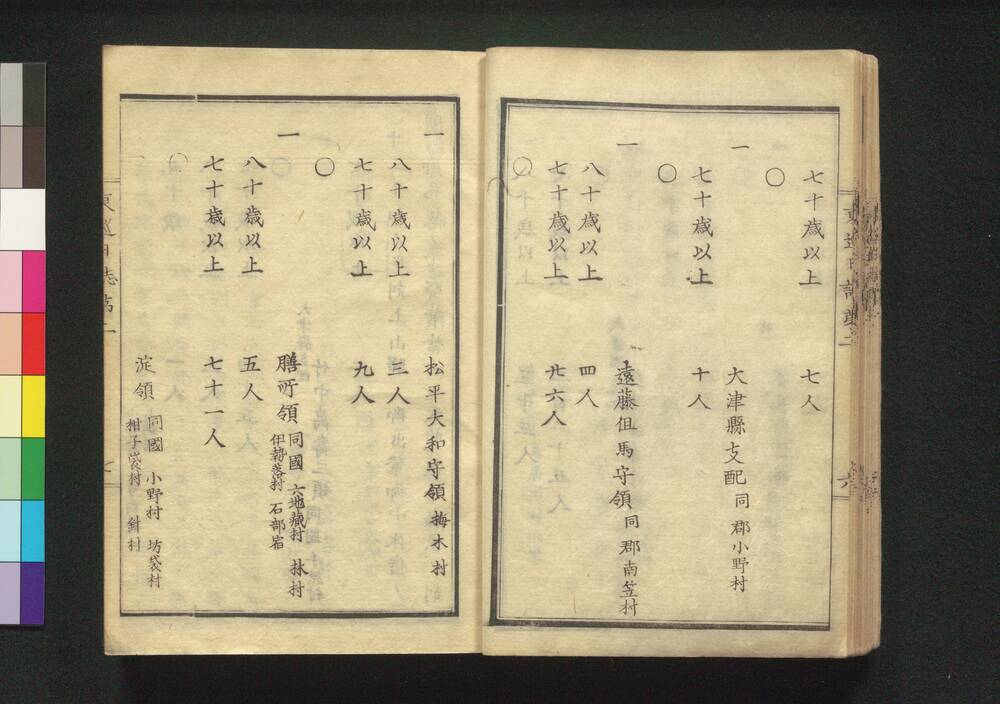 七十歳以上 七人
〇
一 大津縣支配 同郡小野村
七十歳以上 十人
〇
一 遠藤但馬守領 同郡南笠村
八十歳以上 四人
七十歳以上 廿六人
〇
一 松平大和守領 梅木村
八十歳以上 三人
七十歳以上 九人
〇
一 膳所領 同國 六地蔵村 林村
伊勢落村 石部宿
八十歳以上 五人
七十歳以上 七十一人
〇
一 淀領 同國 小野村 坊袋村
柑子袋村 針村
東巡日誌第二